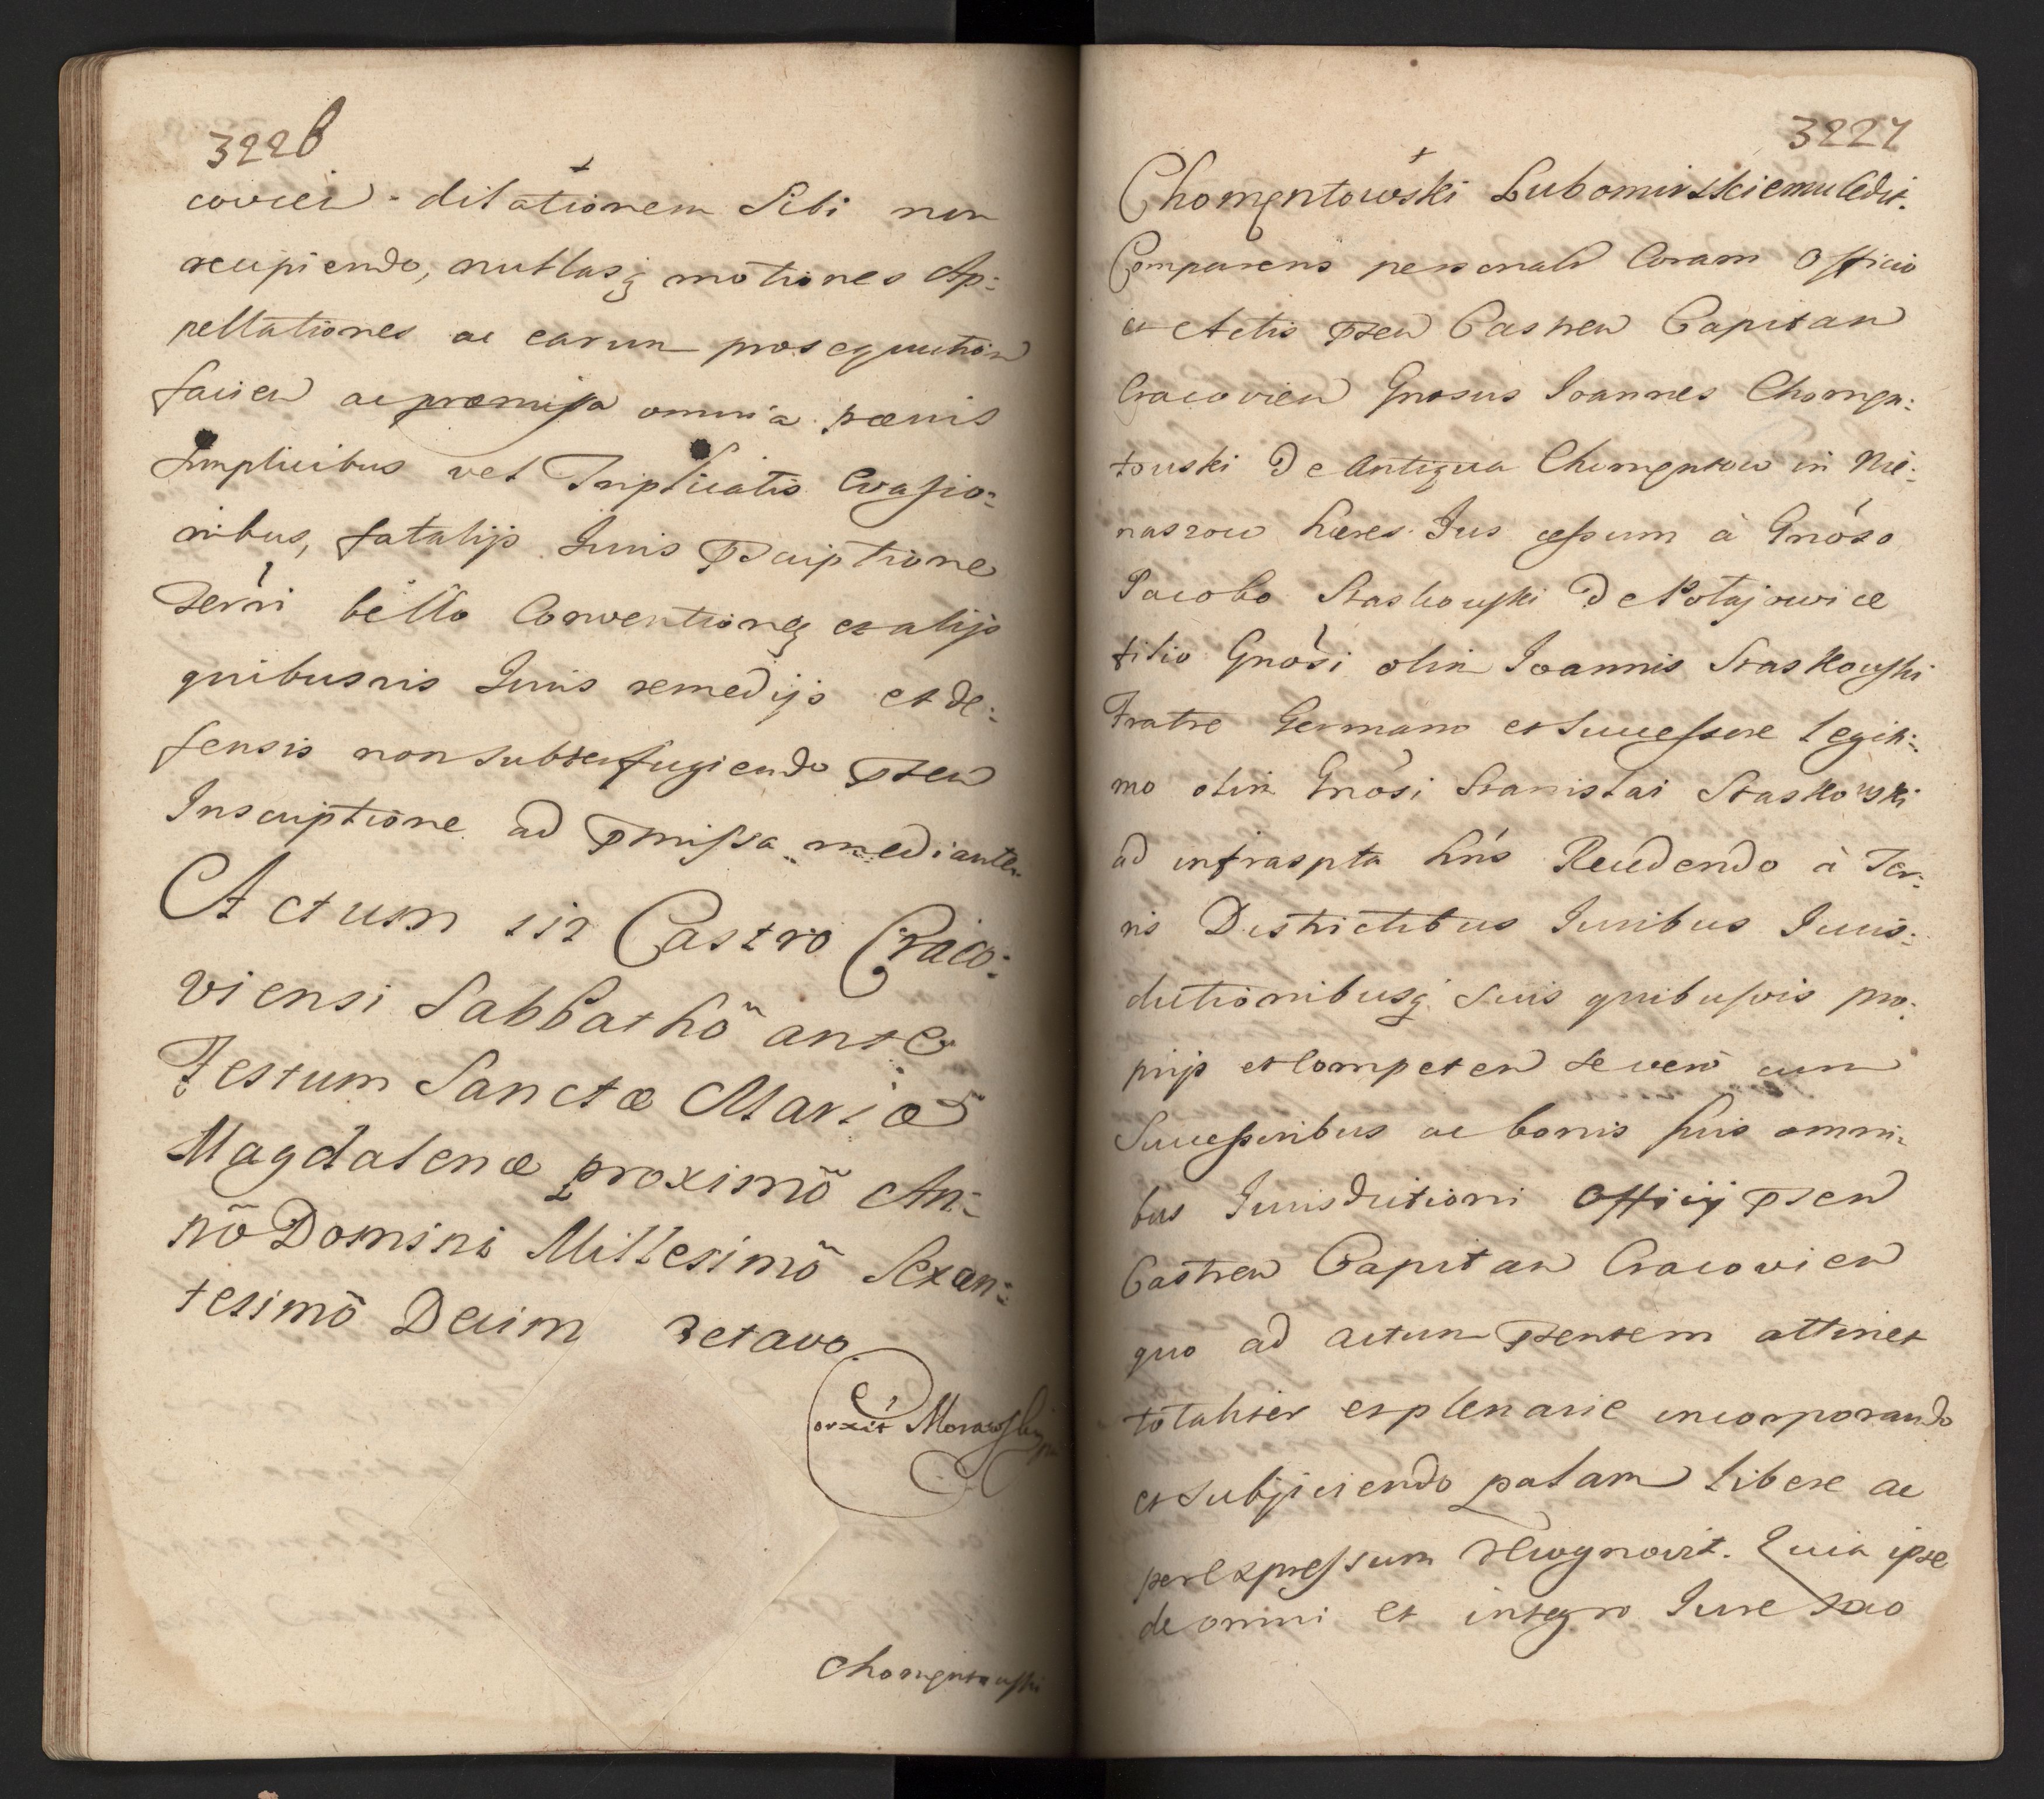 3226
covień dilationem Sibi non
recipiendo, nullasq motiones Ap:
pellationes ac earum prosequution
facien ac præmissa omnia pænis
Simplicibus vel Triplicatis Evasio:
nibus, fatalijs Juris Pscriptione
Terrri bello Conventioneq et alijs
quibusvis Juris remedijs et de:
fensis non subterfugiendo Psen
Inscriptione ad Pmissa mediante
Actum in Castro Craco:
viensi Sabbathõ ante
Festum Sanctæ Mariæ
Magdalenæ proximõ An:
nõ Domini Millesimõ Sexcen:
tesimõ Decim octavo
Corexit Morawski
Chomentowski
3227
Chomentowski Lubomirskiemu Cedit.
Comparens personalr Coram Officio
et Actis Psen Castren Capitan
Cracovien Gnosus Joannes Chomen:
towski De Antiqua Chomentow in Nie:
naszow hæres Jus cessum à Gnoso
Jacobo Staskowski De Potajowice
filio Gnosi olim Joannis Staskowski
Fratre Germano et Successore legiti:
mo olim Gnosi Stanislai Staskowski
ad infrascpta hńs Recedendo à Ter:
ris Districtibus Juribus Juris:
dictionibusq suis quibusvis pro:
prijs et Competen se vero cum
Successoribus ac bonis suis omni:
bus Jurisdictioni Officij Psen
Castren Capitan Cracovien
quo ad actum Psentem attinet
totaliter et plenarie incorporando
et subjiciendo palam libere ac
per Expressum recognovit. Quia ipse
de omni et integro Jure suo